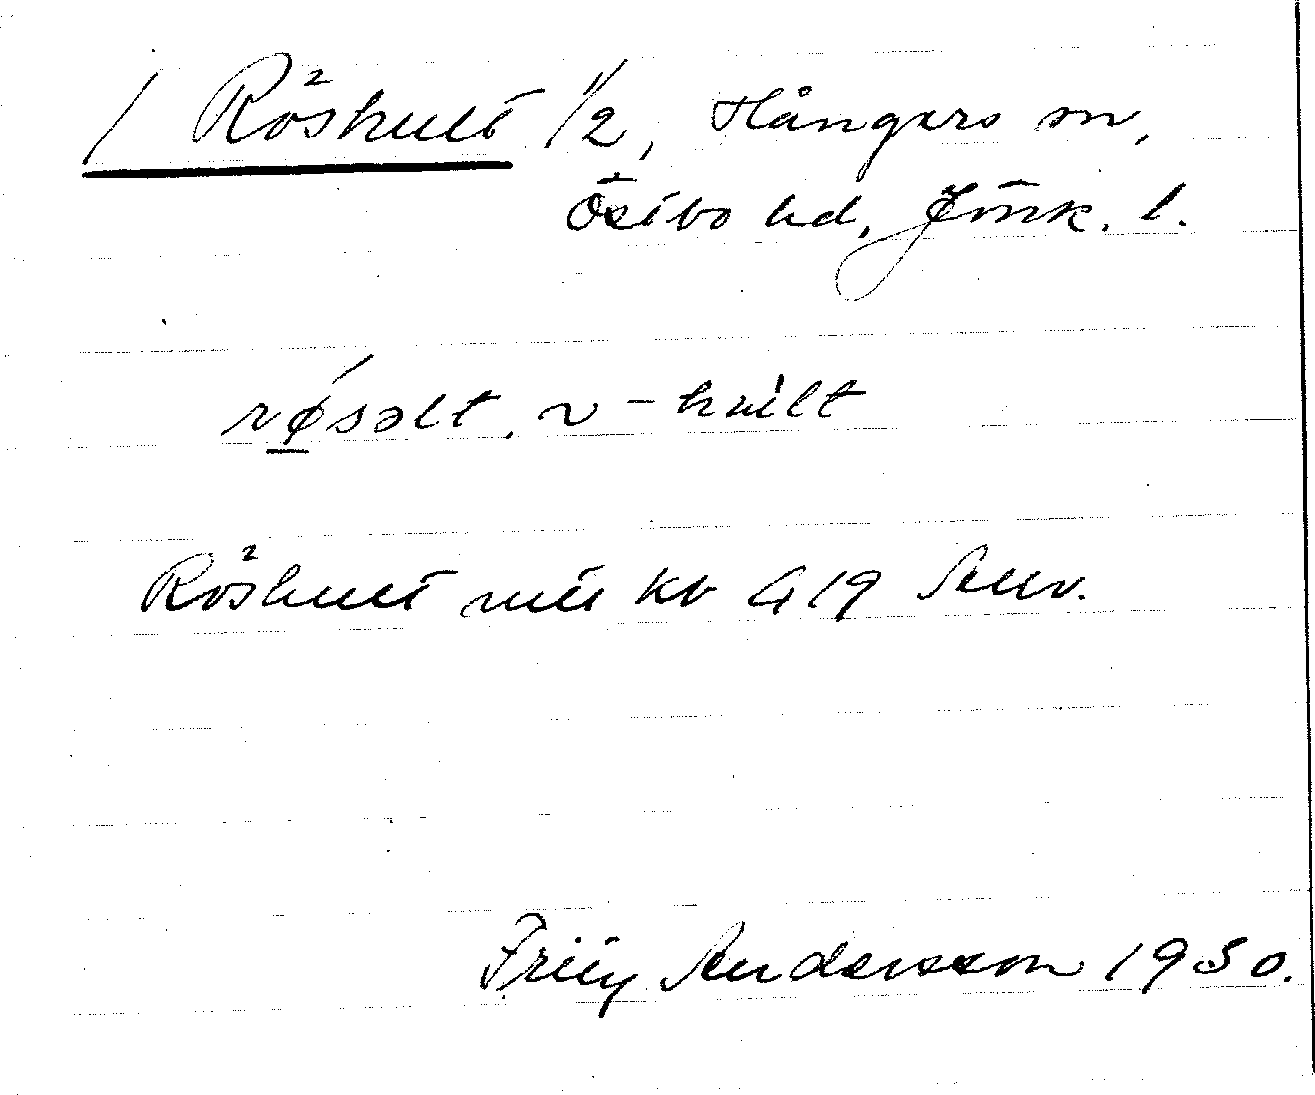 / Röshult 1/2, Hångers sn,
Östbo hd, Jönk. l.
røsəlt, ~ -hult
Röshult mtl kb 419 Sellv.
Fritz Andersson 1930.